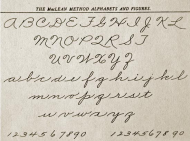 THE McLEAN METHOD ALPHABETS AND FIGURES.
A B C D E F G H I J K L
M N O P Q R S T
U V W X Y Z
a b c d e f g h i j k l
m n o p q r s t
u v w x y z
1 2 3 4 5 6 7 8 9 0 1 2 3 4 5 6 7 8 9 0